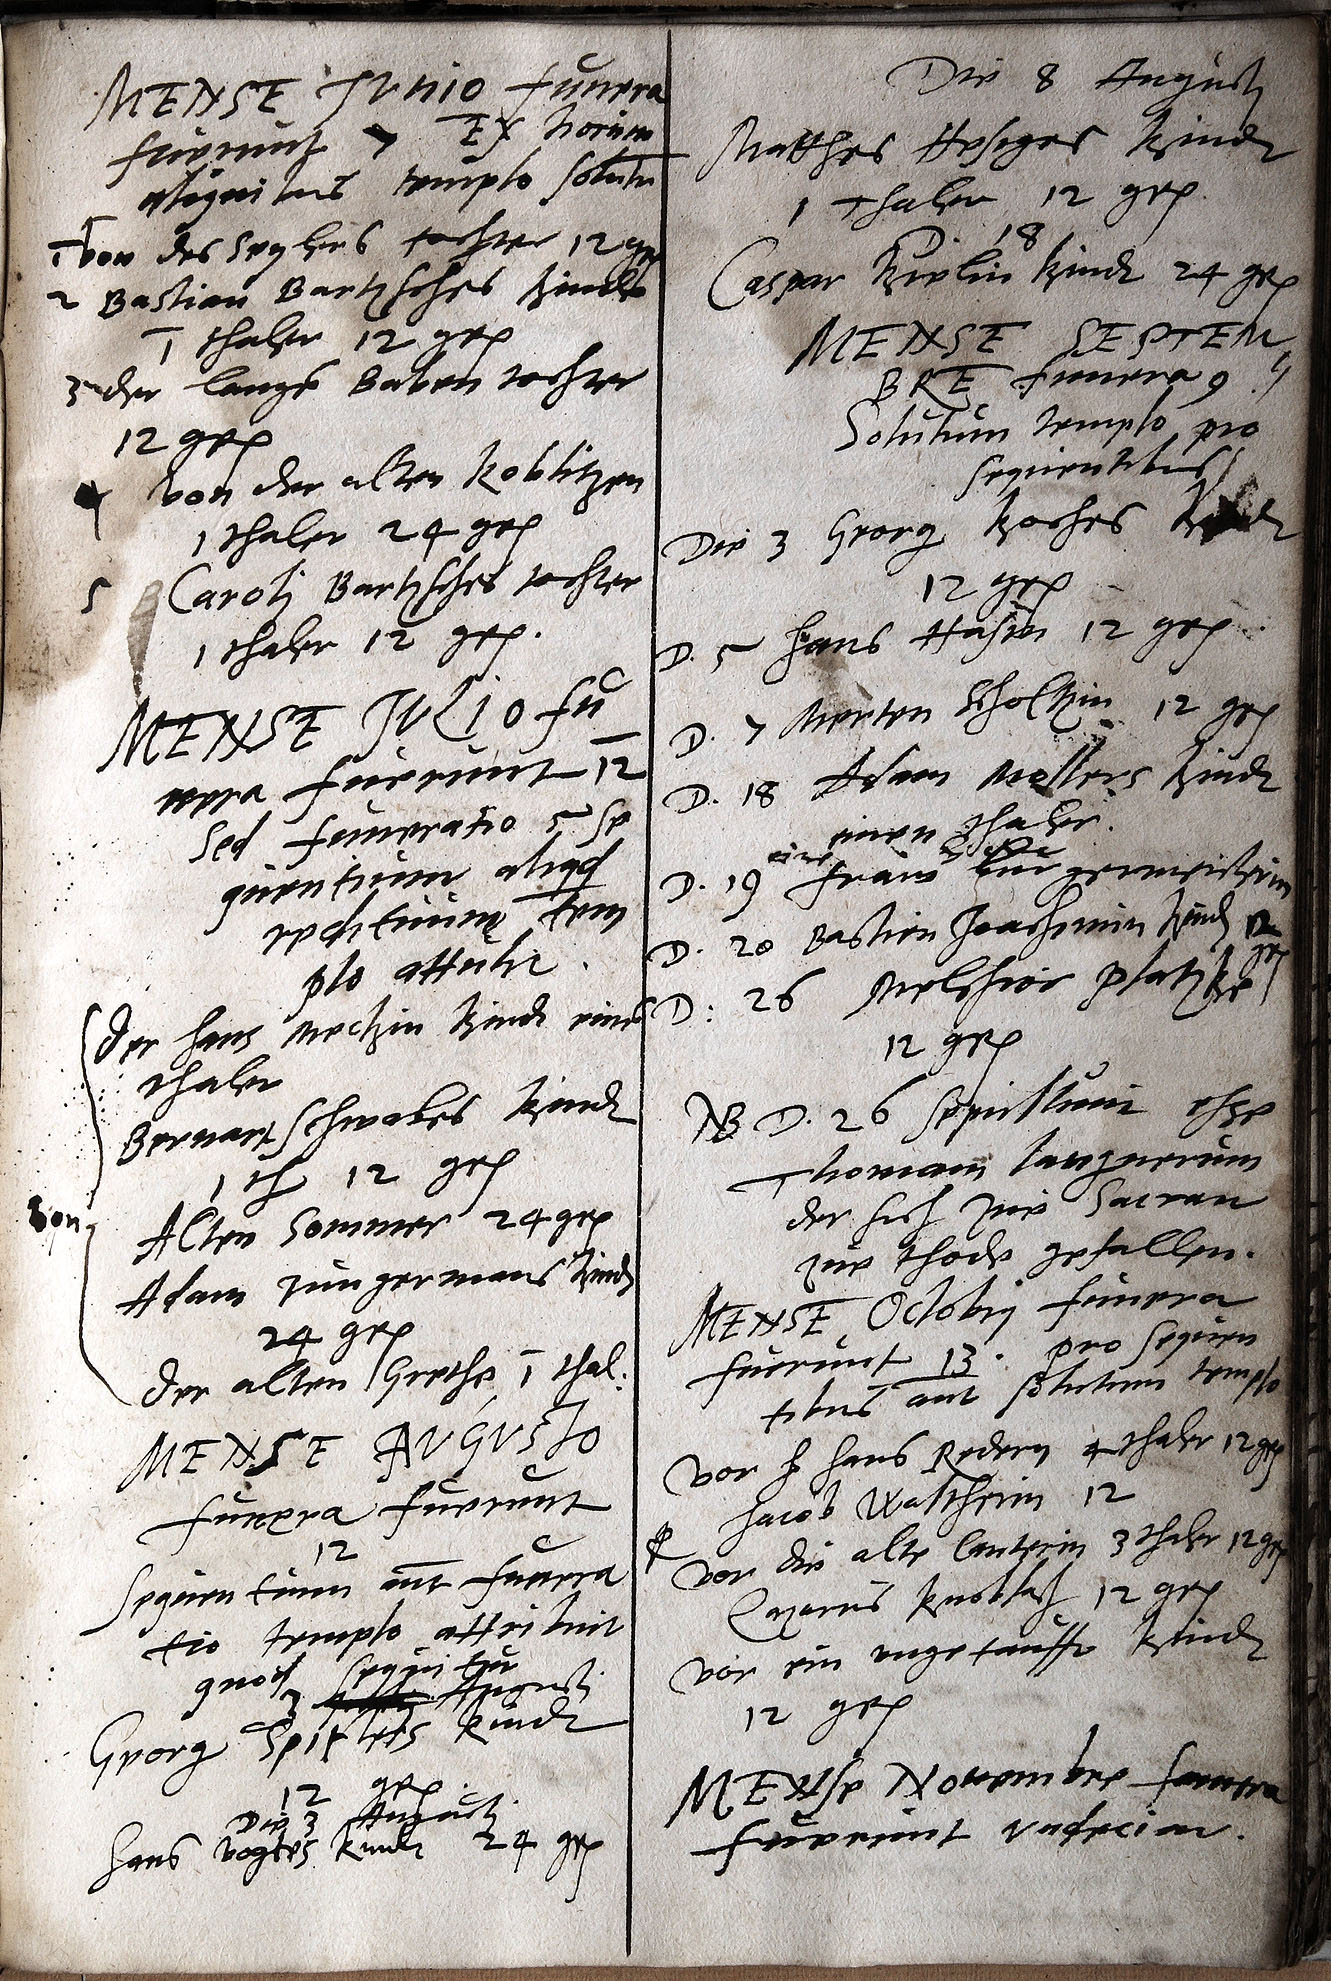 MENSE IVNIO funera
fuerunt 7 Ex horum
templo solutu
1 von des Seglers tochter 12 gr
2 Bastian Bartzsches kinde
1 thaler 12 gr
3 der lange Baben tochter
12 gr
4 von der alten Koblitzen
1 thaler 24 gr
5 Caroli Bartzsches tochter
1 thaler 12 gr.
MENSE IVLIO fu
nera fuerunt 12
Sed funeratio 5 se
quentium aliqd
redituum tem
plo attulit.
der hans kindt eine
thaler
Bernart Schwabes kindt
1 th 12 gr
Von
Alten Sommer 24 gr
Adam Jungermans kindt
24 gr
der alten Grethe 1 thal:
MENSE AVGVSTO
funera fuerunt
12
Sequentium aut funera
tio templo attribuit
quod sequitur
2 Augusti
Georg kindt
12 gr.
Die 3 Augusti.
hans Vogtes kindt 24 gr
Die 8 Augusti
Matthes kindt
1 thaler 12 gr
18
Caspar kindt 24 gr
MENSE SEPTEM
BRE funera 9
Solutum templo pro
sequentibus
Die 3 Georg Koches kindt
12 gr
D. 5 hans 12 gr
D. 7 Merten Scholtzin 12 gr
D. 18 Adam kindt
einen thaler.
D. 19 eine fraw germeisterin
D. 20 Bastien Joachimin kindt 12
gr
D: 26 Melchior Platzke
12 gr
NB D. 26 sepultum ehre
Thomam Langnerum
der sich zue Sacran
zue thode gefallen.
MENSE Octobri funera
fuerunt 13. pro sequen
tibus aut solutum templo
vor h hans Redern 4 thaler 12 gr
Jacob Waltheim 12
vor die alte Canterin 3 thaler 12 gr
Lazarus Knobloch 12 gr
vor ein ungetaufft kindt
12 gr
MENSe Novembre funera
fuerunt undecim.